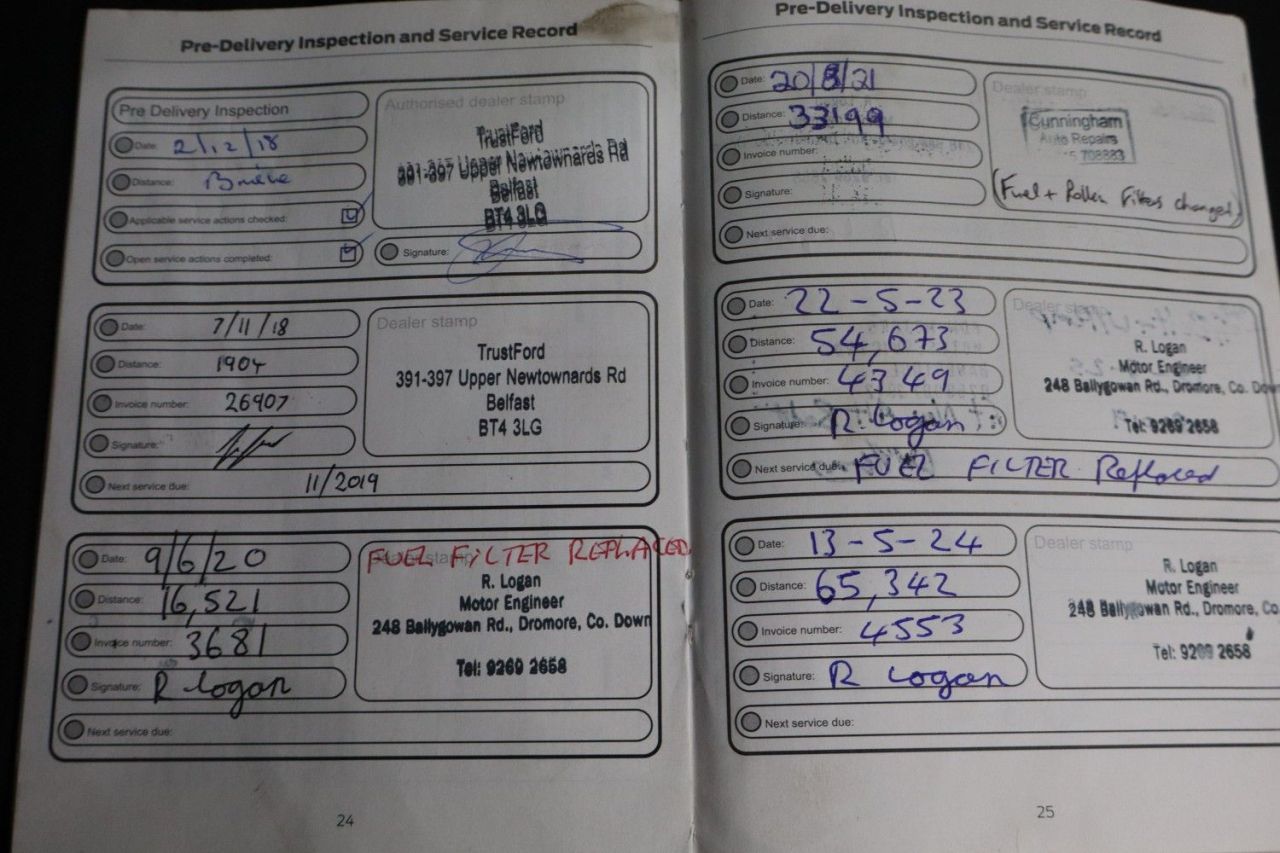 Pre-Delivery Inspection and Service Record
Pre Delivery Inspection
Date: 2/12/18
Distance:
Applicable service actions checked:
Open service actions completed:
Authorised dealer stamp
TrustFord
391-397 Upper Newtownards Rd
Belfast
BT4 3LG
Signature:
Date: 7/11/18
Distance: 1904
Invoice number: 26907
Signature:
Next service due: 11/2019
Dealer stamp
TrustFord
391-397 Upper Newtownards Rd
Belfast
BT4 3LG
Date: 9/6/20
Distance: 16,521
Invoice number: 3681
Signature: R Logan
Next service due:
FUEL FILTER REPLACED
R. Logan
Motor Engineer
248 Ballygowan Rd., Dromore, Co. Down
Tel: 9269 2658
24
Pre-Delivery Inspection and Service Record
Date: 20/8/21
Distance: 33199
Invoice number:
Signature:
Next service due:
Dealer stamp
Cunningham
Auto Repairs
708883
(Fuel + Pollen Filters changed)
Date: 22-5-23
Distance: 54,673
Invoice number: 4349
Signature: R. Logan
Next service due: FUEL FILTER Replaced
Dealer stamp
R. Logan
Motor Engineer
248 Ballygowan Rd., Dromore, Co. Down
Tel: 9269 2658
Date: 13-5-24
Distance: 65,342
Invoice number: 4553
Signature: R Logan
Next service due:
Dealer stamp
R. Logan
Motor Engineer
248 Ballygowan Rd., Dromore, Co.
Tel: 9269 2658
25